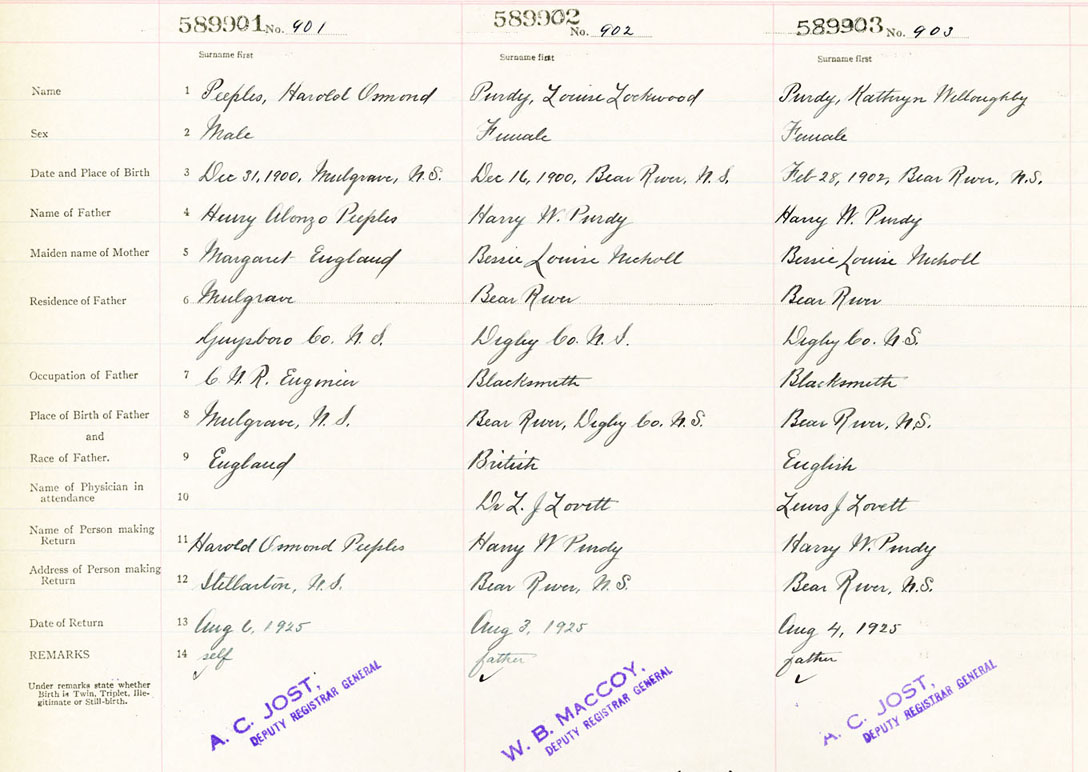 589901 No. 901 589902 No. 902 589903 No. 903
Surname first Surname first Surname first
Name 1 Peeples, Harold Osmond Purdy, Louise Lockwood Purdy, Kathryn Willoughby
Sex 2 Male Female Female
Date and Place of Birth 3 Dec 31, 1900, Mulgrave, N.S. Dec 16, 1900, Bear River, N.S. Feb 28, 1902, Bear River, N.S.
Name of Father 4 Henry Alonzo Peeples Harry W. Purdy Harry W. Purdy
Maiden name of Mother 5 Margaret England Bessie Louise Nicholl Bessie Louise Nicholl
Residence of Father 6 Mulgrave Bear River Bear River
Guysboro Co. N.S. Digby Co. N.S. Digby Co. N.S.
Occupation of Father 7 C N.R. Enginier Blacksmith Blacksmith
Place of Birth of Father 8 Mulgrave, N.S. Bear River, Digby Co. N.S. Bear River, N.S.
and
Race of Father. 9 England British English
Name of Physician in
attendance 10 Dr L. J Lovett Lewis J Lovett
Name of Person making
Return 11 Harold Osmond Peeples Harry W Purdy Harry W. Purdy
Address of Person making
Return 12 Stellarton, N.S. Bear River, N.S. Bear River, N.S.
Date of Return 13 Aug 6, 1925 Aug 3, 1925 Aug 4, 1925
REMARKS 14 self father father
Under remarks state whether
Birth is Twin, Triplet, Ille-
gitimate or Still-birth.
A. C. JOST,
DEPUTY REGISTRAR GENERAL
W. B. MacCOY,
DEPUTY REGISTRAR GENERAL
A. C. JOST,
DEPUTY REGISTRAR GENERAL